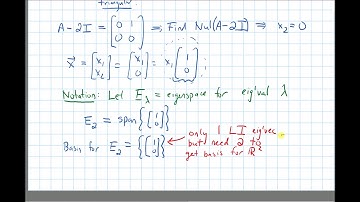 triangular
A-2I = [0 1; 0 0] ⇒ Find Nul(A-2I) ⇒ x₂=0
x⃗ = [x₁; x₂] = [x₁; 0] = x₁ [1; 0]
Notation: Let E_λ = eigenspace for eig'val λ
E₂ = span{[1; 0]}
Basis for E₂ = {[1; 0]}
only 1 LI eig'vec
but need 2 to
get basis for ℝ²